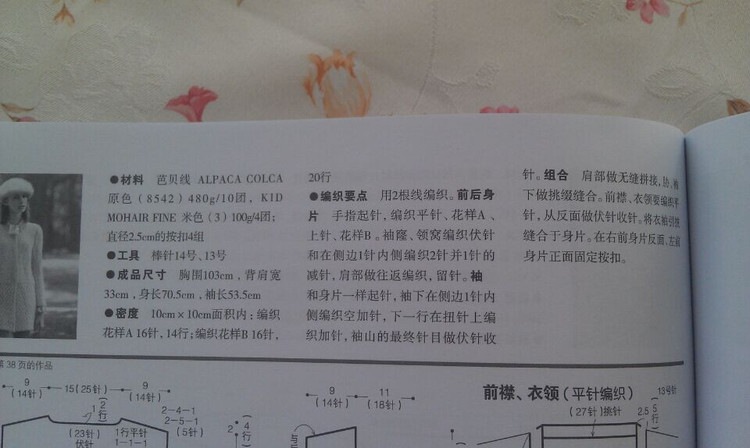 ●材料 芭贝线 ALPACA COLCA
原色(8542)480g/10团，KID
MOHAIR FINE 米色(3)100g/4团；
直径2.5cm的按扣4组
●工具 棒针14号、13号
●成品尺寸 胸围103cm，背肩宽
33cm，身长70.5cm，袖长53.5cm
●密度 10cm×10cm面积内：编织
花样A 16针，14行；编织花样B 16针，
20行
●编织要点 用2根线编织。前后身
片 手指起针，编织平针、花样A、
上针、花样B。袖窿、领窝编织伏针
和在侧边1针内侧编织2针并1针的
减针，肩部做往返编织，留针。袖
和身片一样起针，袖下在侧边1针内
侧编织空加针，下一行在扭针上编
织加针，袖山的最终针目做伏针收
针。组合 肩部做无缝拼接，胁、袖
下做挑缀缝合。前襟、衣领要编织平
针，从反面做伏针收针。将衣袖引拔
缝合于身片。在右前身片反面、左前
身片正面固定按扣。
第38页的作品
9
(14针)
15(25针)
9
(14针)
(23针)
伏针
1
(2行)
1行平针
1-1-1
2-4-1
2-5-1
(5针)
2
(4行)
9
(14针)
11
(18针)
前襟、衣领(平针编织)
13号针
(27针)挑针
2.5
(5行)